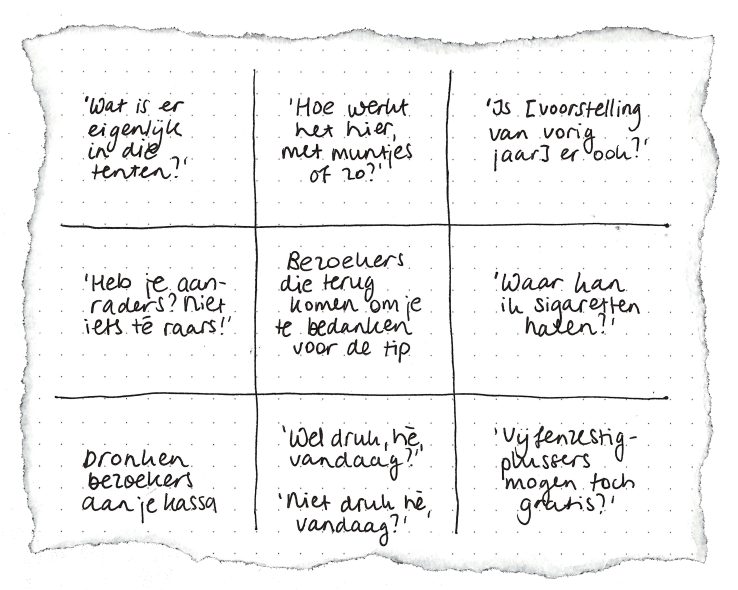 'Wat is er
eigenlijk
in die
tenten?'
'Hoe werkt
het hier,
met muntjes
of zo?'
'Is [voorstelling
van vorig
jaar] er ook?'
'Heb je aan-
raders? Niet
iets té raars!'
Bezoekers
die terug
komen om je
te bedanken
voor de tip
'Waar kan
ik sigaretten
halen?'
Dronken
bezoekers
aan je kassa
'Wel druk, hè,
vandaag?'
'Niet druk hè,
vandaag?'
'Vijfenzestig-
plussers
mogen toch
gratis?'